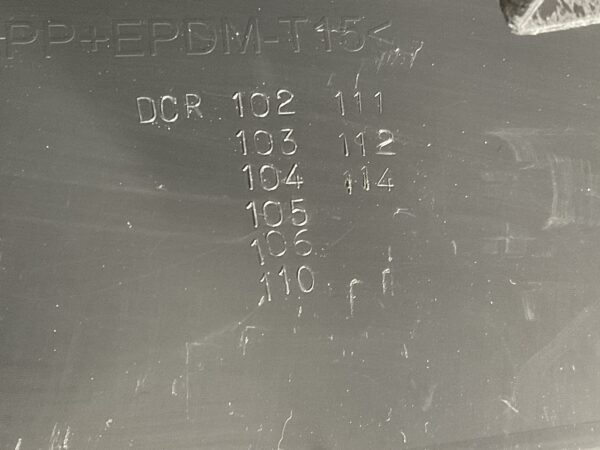 PP+EPDM-T15<
DCR 102 111
103 112
104 114
105
106
110